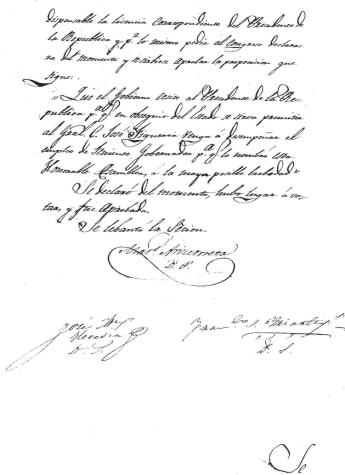 dispensable la licencia correspondiente del Presidente de
la Republica y p.r lo mismo pedia al congreso declarara
de momento y se sirviese aprobar la proposicion que
sigue:
"Que el Gobierno excite al Presidente de la Republica
p.a q.e en obsequio del Estado se sirva permitir
al Gral. C. José venga á desempeñar el
empleo de Gobernador p.a q.e lo nombró esta
Honorable á la mayor posible brebedad"
Se declaró del momento, hubo lugar á votar,
y fué aprobada.
Se lebantó la Secion.
D. P.
José M.a
Heredia
D. S.
Juan
D. S.
Se